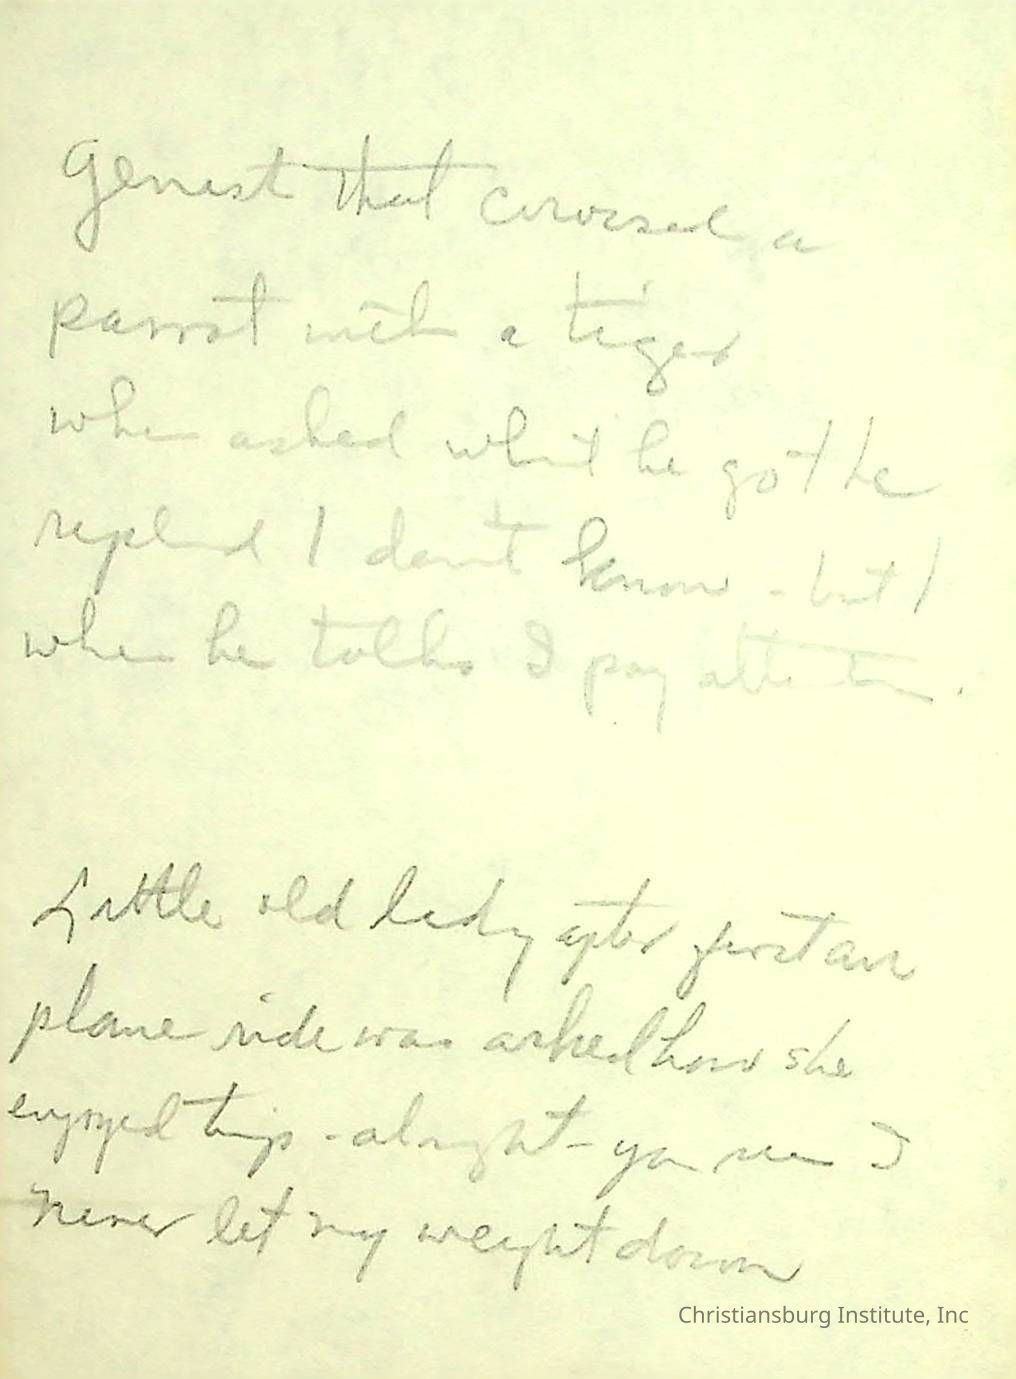 Genist that corossed a
parrot with a tiger
when asked what he got he
replied I don't know - but I
when he talks I pay attention.
Little old lady after first air
plane ride was asked how she
enjoyed trip - alright - you see I
never let my weight down
Christiansburg Institute, Inc